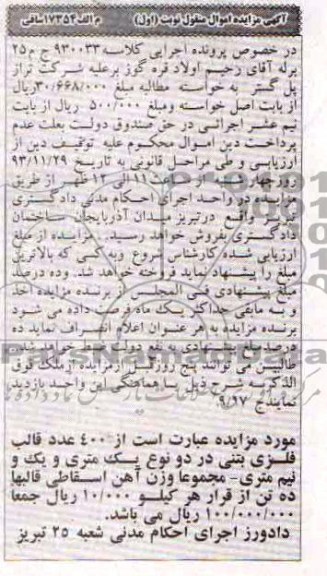 آگهی مزایده اموال منقول نوبت (اول) م الف ۱۷۳۵۲ ساقی
در خصوص پرونده اجرایی کلاسه ۹۳۰۰۳۳ ج م ۲۵
برله آقای رحیم اولاد قره گوز برعلیه شرکت تراز
پل گستر به خواسته مطالبه مبلغ ۳۰/۶۶۸/۰۰۰ ریال
از بابت اصل خواسته ومبلغ ۵۰۰/۰۰۰ ریال از بابت
نیم عشر اجرائی در حق صندوق دولت بعلت عدم
پرداخت دین اموال محکوم علیه توقیف دین از
ارزیابی و طی مراحل قانونی به تاریخ ۹۳/۱۱/۲۹
روز چهار از ساعت ۱۱ الی ۱۲ ظهر از طریق
مزایده در واحد اجرای احکام مدنی دادگستری
واقع درتبریز میدان آذربایجان ساختمان
دادگستری بفروش خواهد رسید. مزایده از مبلغ
ارزیابی شده کارشناس شروع وبه کسی که بالاترین
مبلغ را پیشنهاد نماید فروخته خواهد شد. وده درصد
مبلغ پیشنهادی فی المجلس از برنده مزایده اخذ
و به مابقی حداکثر یک ماه فرصت داده می شود
برنده مزایده به هر عنوان اعلام انصراف نماید ده
درصد پیشنهادی به نفع دولت ضبط خواهد شد.
طالبین می توانند پنج روز قبل از مزایده از ملک فوق
الذکر به شرح ذیل با هماهنگی این واحد بازدید
نمایند ج ۹/۹۷
مورد مزایده عبارت است از ۴۰۰ عدد قالب
فلزی بتنی در دو نوع یک متری و یک و
نیم متری- مجموعا وزن آهن اسقاطی قالبها
ده تن از قرار هر کیلو ۱۰/۰۰۰ ریال جمعا
۱۰۰/۰۰۰/۰۰۰ ریال می باشد.
دادورز اجرای احکام مدنی شعبه ۲۵ تبریز
ParsNamadData